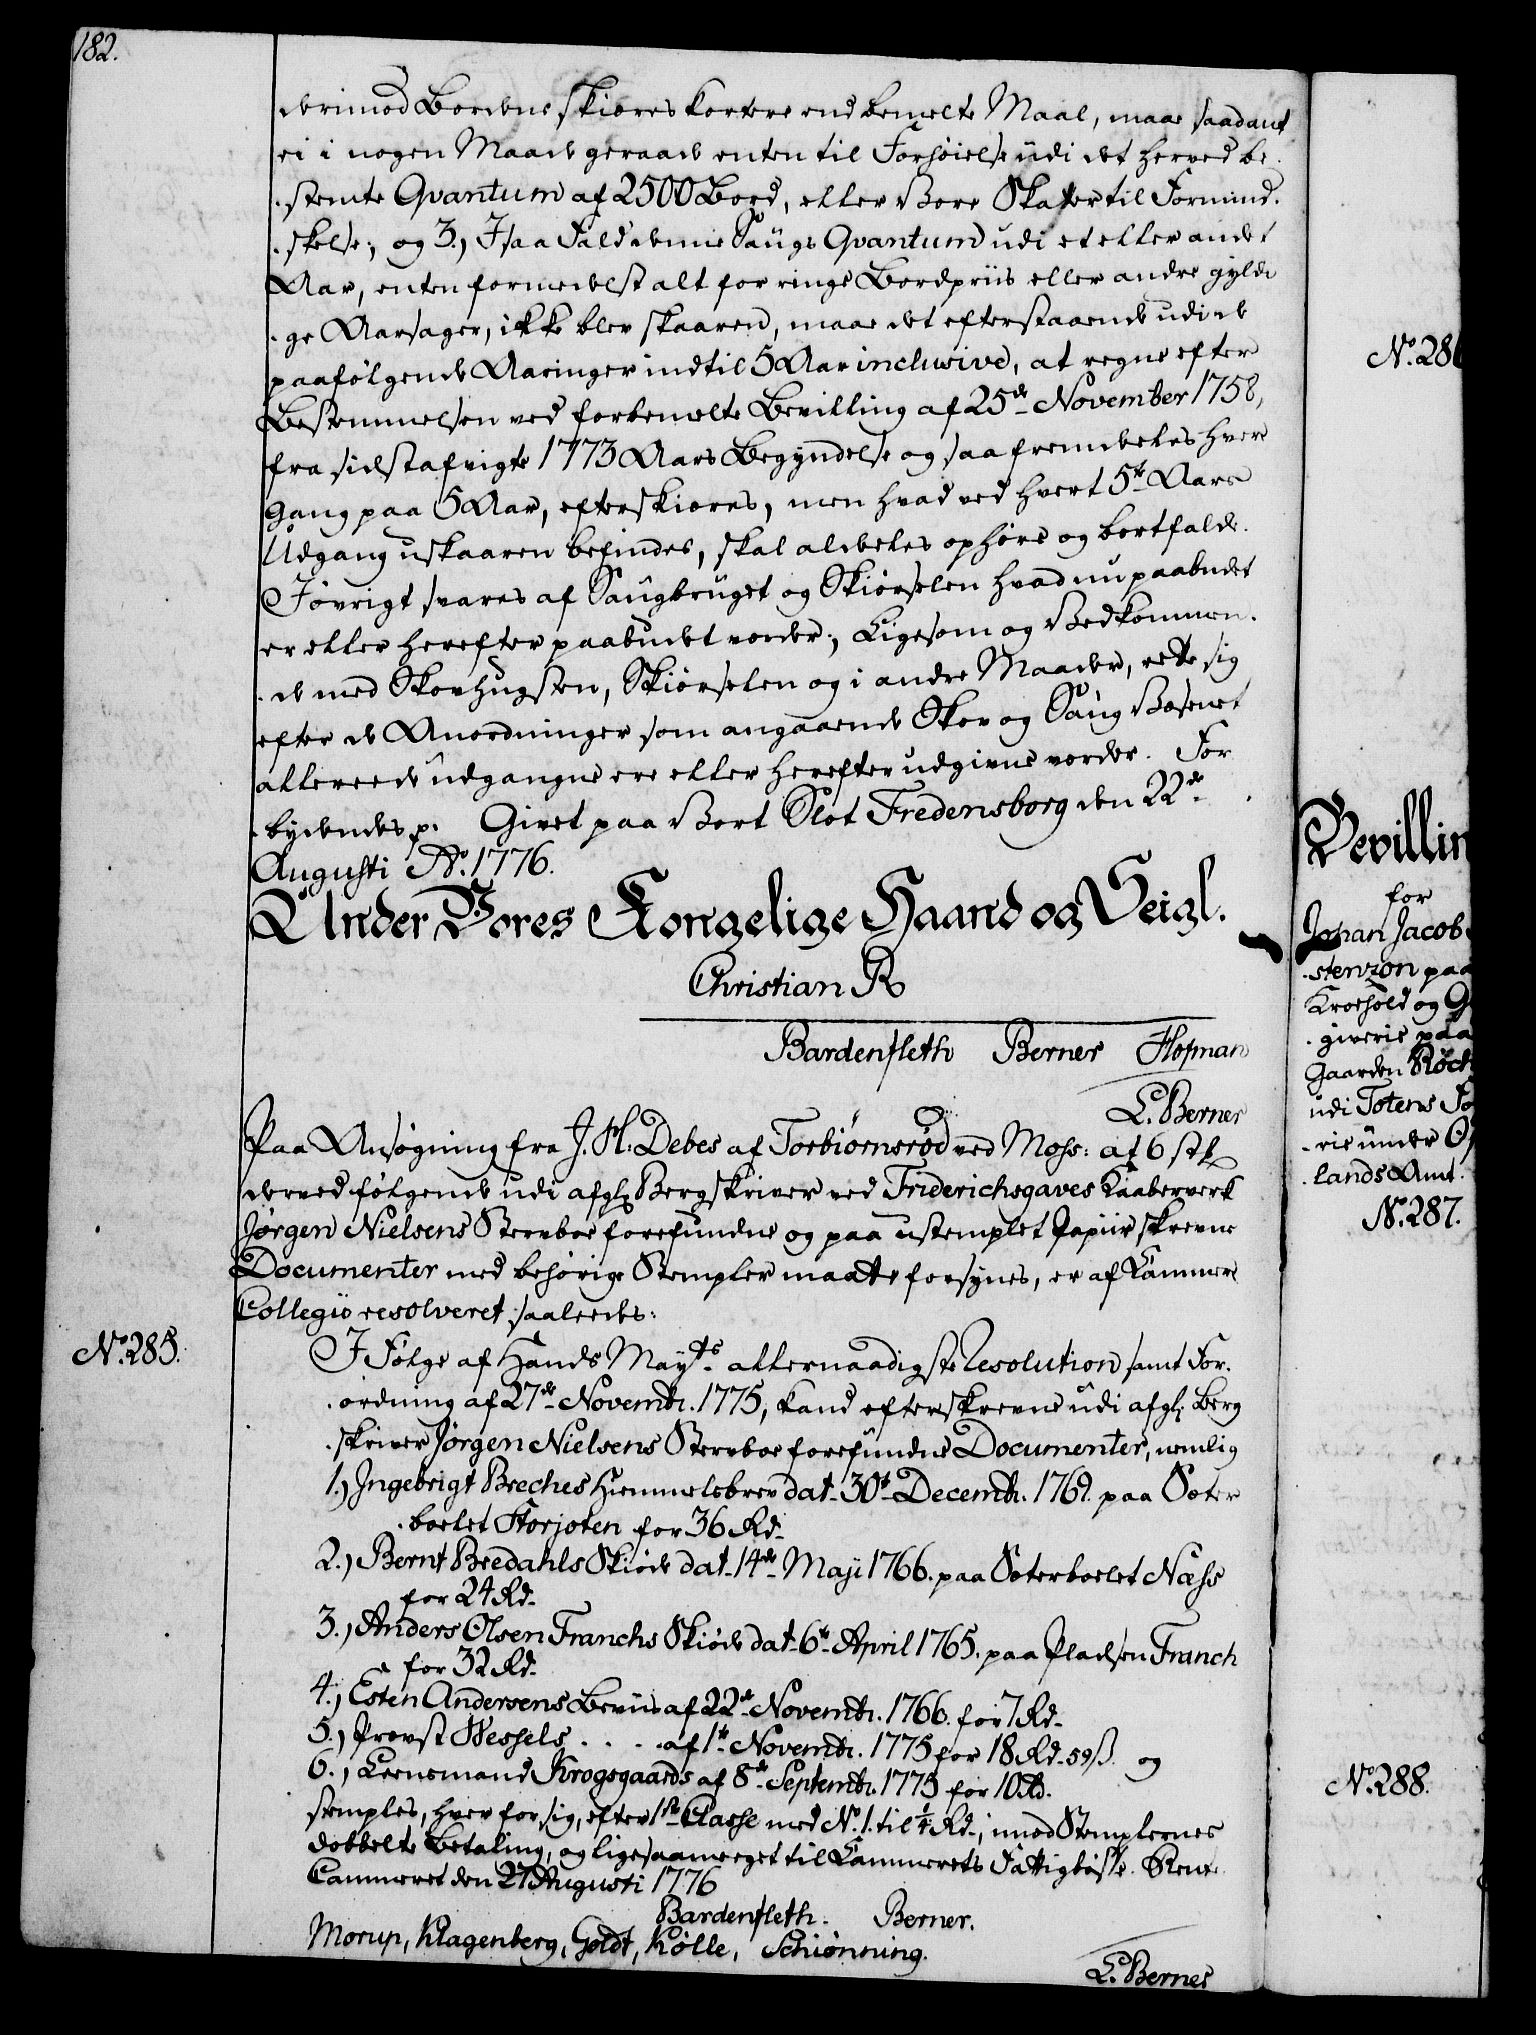 182.
derimod Bordene skiæres kortere end bemelte Maal, maae saadant
ei i nogen Maade geraade enten til Forhøielse udi det herved be-
stemte Qvantum af 2500 Bord, eller Vore Skatter til Formind-
skelse; og 3.) I saa Fald denne Saugs Qvantum udi et eller andet
Aar, enten formedelst alt for ringe Bordpriis eller andre gyldi-
ge Aarsager, ikke blev skaaren, maae det efterstaaende udi de
paafølgende Aaringer indtil 5 Aar inclusive, at regne efter
Bestemmelsen ved forbemelte Bevilling af 25de November 1758,
fra sidstafvigte 1773 Aars Begyndelse og saa fremdeles hver
Gang paa 5 Aar, efterskiæres, men hvad ved hvert 5te Aars
Udgang uskaaren befindes, skal aldeles ophøre og bortfalde.
Iøvrigt svares af Saugbruget og Skiørselen hvad nu paabudet
er eller herefter paabudet vorder; Ligesom og Vedkommen-
de med Skovhugsten, Skiørselen og i andre Maader, rette sig
efter de Anordninger som angaaende Skov og Saug Væsenet
allereede udgangne ere eller herefter udgivne vorder. For-
bydendes p. Givet paa Vort Slot Fredensborg den 22de
Augusti Ao. 1776.
Under Vores Kongelige Haand og Seigl.
Christian R
Bardenfleth Berner Hofman
L. Berner
Paa Ansøgning fra J. H. Debes af Torbiørnsrød ved Moss: at 6 stk
derved følgende udi afgl. Bergskriver ved Friderichsgaves Kaaberverk
Jørgen Nielsens Sterboe forefundne og paa ustemplet Papiir skrevne
Documenter med behørige Stempler maatte forsynes, er af Kammer
Collegio resolveret saaledes:
No. 285.
I Følge af Hands Mayts allernaadigste Resolution samt For-
ordning af 27de Novembr. 1775, kand efterskrevne udi afgl. Berg
skriver Jørgen Nielsens Sterboe forefundne Documenter, nemlig
1.) Ingebrigt Breches Hiemmelsbrev dat. 30te Decembr. 1769. paa Sæter
boelet Storjoten for 36 Rd.
2.) Bernt Bredahls Skiøde dat. 14de Maji 1766. paa Sæterboelet Næss
for 24 Rd.
3.) Anders Olsen Franchs Skiøde dat. 6te April 1765. paa Pladsen Franch
for 32 Rd.
4.) Esten Andersens Beviis af 22de Novembr. 1766. for 7 Rd.
5.) Provst Wessels . . . . af 1te Novembr. 1775 for 18 Rd. 59 ß og
6.) Leensmand Krogsgaards af 8de Septembr. 1775 for 10 Rd.
stemples, hver for sig, efter 1ste Classe med No. 1. til ¼ Rd., imod Stemplernes
dobbelte Betaling, og ligesaameget til Kammerets Fattigbøsse. Rente
Cammeret den 27 Augusti 1776
Bardenfleth. Berner.
Morup, Klagenberg, Goldt, Kølle, Schiønning.
L. Berner
No. 286
Bevillin
for
Johan Jacob
stenzon paa
Kroehold og G
giverie paa
Gaarden Röck
udi Totens Fo
rie under O
lands Amt.
No. 287.
No. 288.